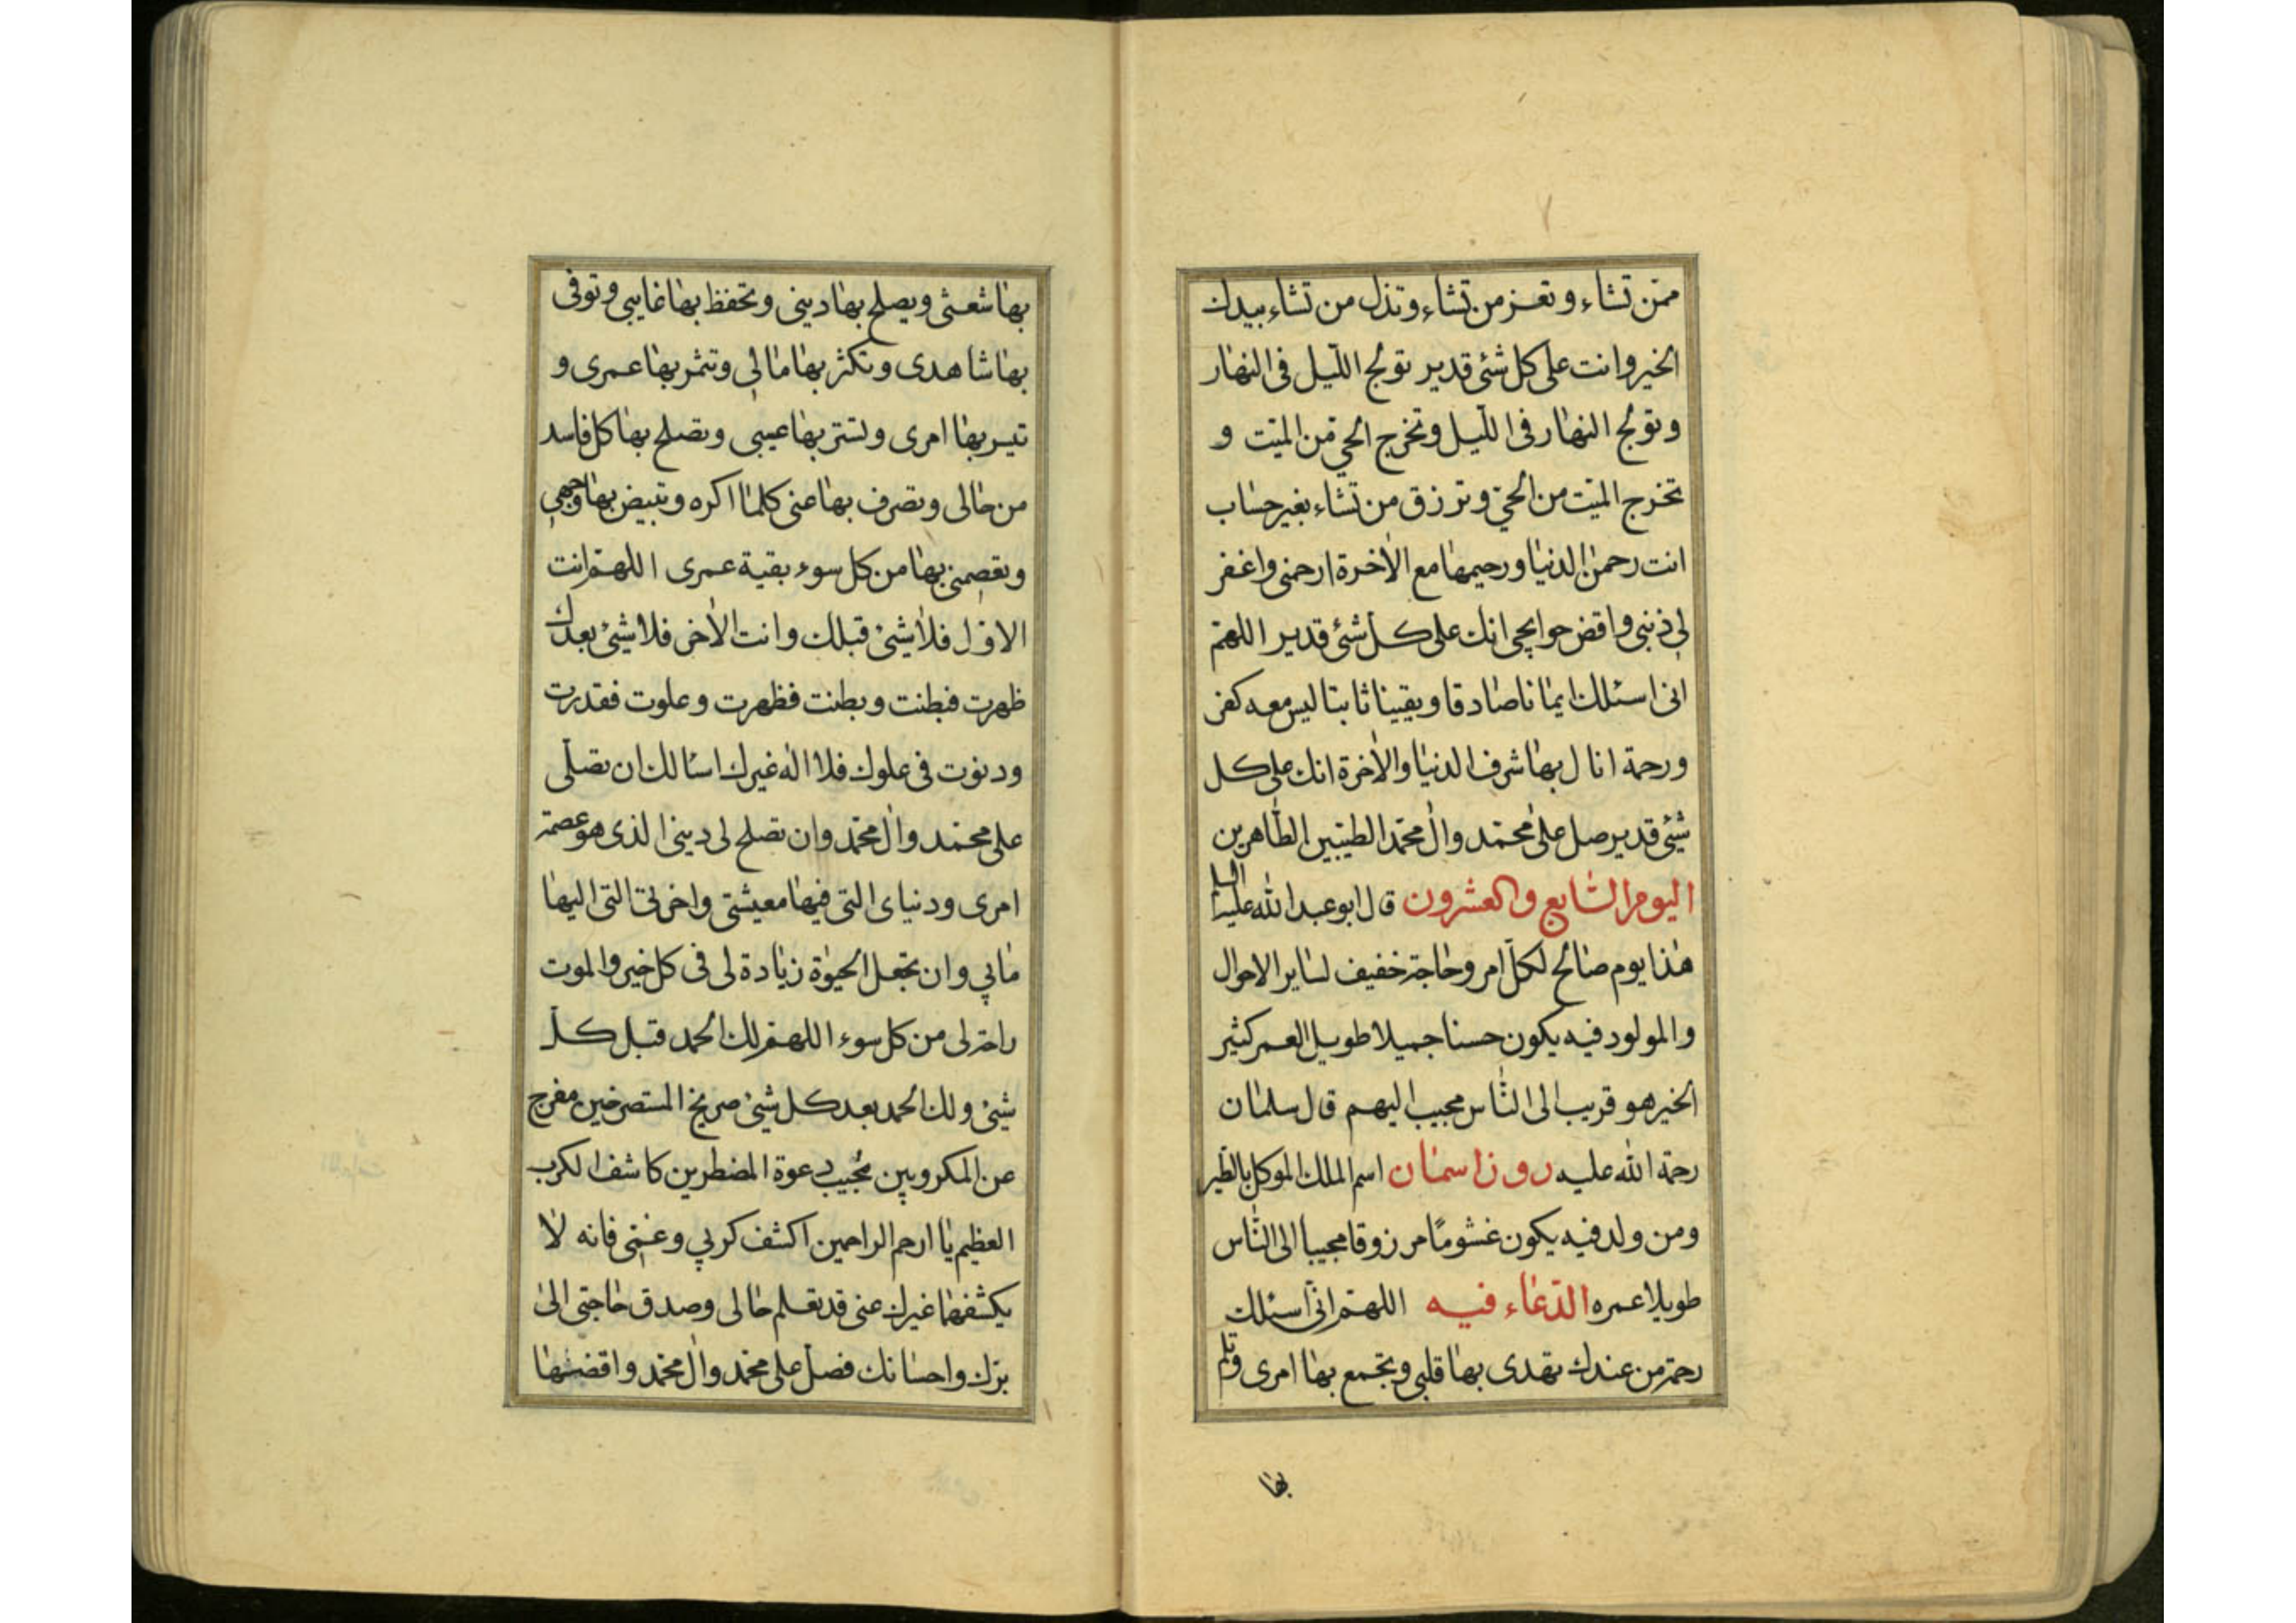 ممّن تشاء وتعز من تشاء وتذل من تشاء بيدك
الخير وانت على كل شئ قدير تولج اللّيل فى النهار
وتولج النهار فى اللّيل وتخرج الحي من الميّت و
تخرج الميّت من الحيّ وترزق من تشاء بغير حساب
انت رحمن الدنيا ورحيمها مع الاخرة ارحمنى واغفر
لى ذنبى واقض حوايجى انك على كل شئ قدير اللهمّ
انى اسئلك ايمانا صادقا ويقينا ثابتا ليس معه كفر
ورحمة انال بها شرف الدنيا والاخرة انك على كل
شئ قدير صل على محمّد وال محمّد الطيّبين الطّاهرين
اليوم السّابع والعشرون قال ابو عبد الله عليه السلام
هذا يوم صالح لكلّ امر وحاجة خفيف لساير الاحوال
والمولود فيه يكون حسنا جميلا طويل العمر كثير
الخير هو قريب الى النّاس محبب اليهم قال سلمان
رحمة الله عليه روز اسمان اسم الملك الموكل بالطّير
ومن ولد فيه يكون غشومًا مرزوقا محببا الى النّاس
طويلا عمره الدّعاء فيه اللهمّ انّى اسئلك
رحمة من عندك تهدى بها قلبى وتجمع بها امرى وتلم
بها
بها شعثى ويصلح بها دينى وتحفظ بها غايبى وتوفى
بها شاهدى وتكثر بها مالى وتثمر بها عمرى و
تيسر بها امرى وتستر بها عيبى وتصلح بها كل فاسد
من حالى وتصرف بها عنى كلما اكره وتبيض بها وجهى
وتعصمنى بها من كل سوء بقية عمرى اللهمّ انت
الاوّل فلا شئ قبلك وانت الاخر فلا شئ بعدك
ظهرت فبطنت وبطنت فظهرت وعلوت فقدرت
ودنوت فى علوك فلا اله غيرك اسئالك ان تصلّى
على محمّد وال محمّد وان تصلح لى دينى الذى هو عصمة
امرى ودنياى التى فيها معيشتى واخرتى التى اليها
مابي وان تجعل الحيوة زيادة لى فى كل خير والموت
راحة لى من كل سوء اللهمّ لك الحمد قبل كلّ
شئ ولك الحمد بعد كل شئ صريخ المستصرخين مفرج
عن المكروبين مجيب دعوة المضطرين كاشف الكرب
العظيم يا ارحم الراحمين اكشف كربي وغمّى فانه لا
يكشفها غيرك عنى قد تعلم حالى وصدق حاجتى الى
برّك واحسانك فصلّ على محمّد وال محمّد واقضها